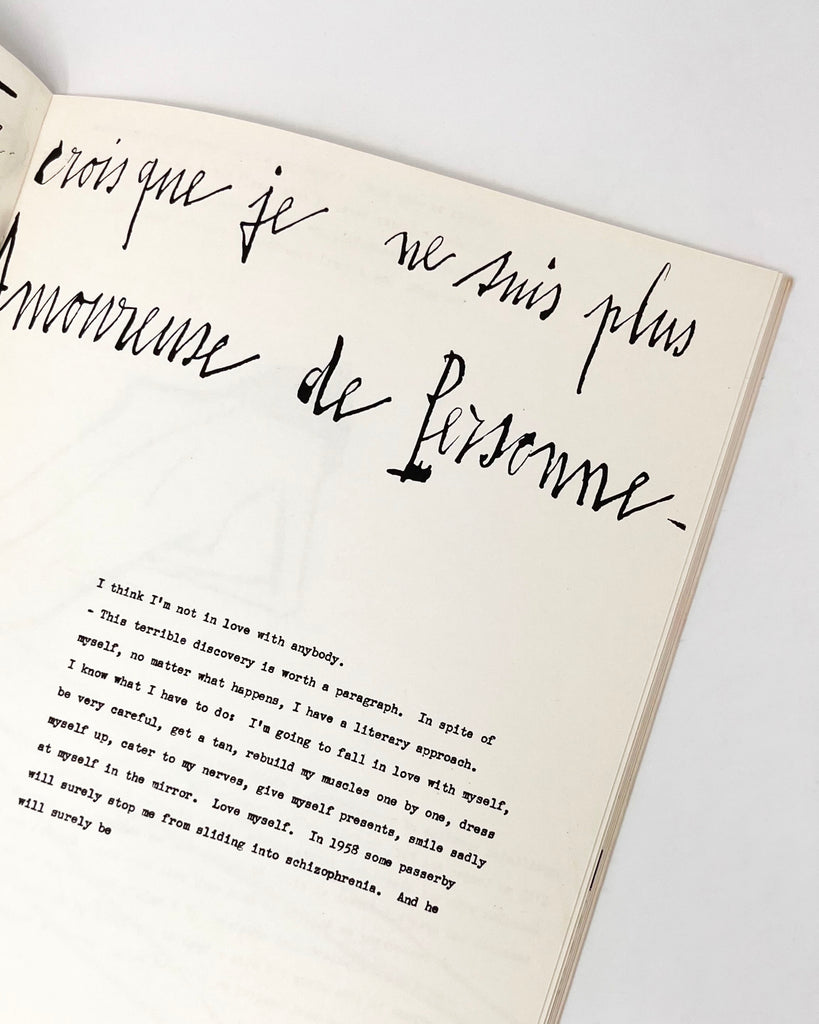 crois que je ne suis plus
Amoureuse de Personne-
I think I'm not in love with anybody.
- This terrible discovery is worth a paragraph. In spite of
myself, no matter what happens, I have a literary approach.
I know what I have to do: I'm going to fall in love with myself,
be very careful, get a tan, rebuild my muscles one by one, dress
myself up, cater to my nerves, give myself presents, smile sadly
at myself in the mirror. Love myself. In 1958 some passerby
will surely stop me from sliding into schizophrenia. And he
will surely be